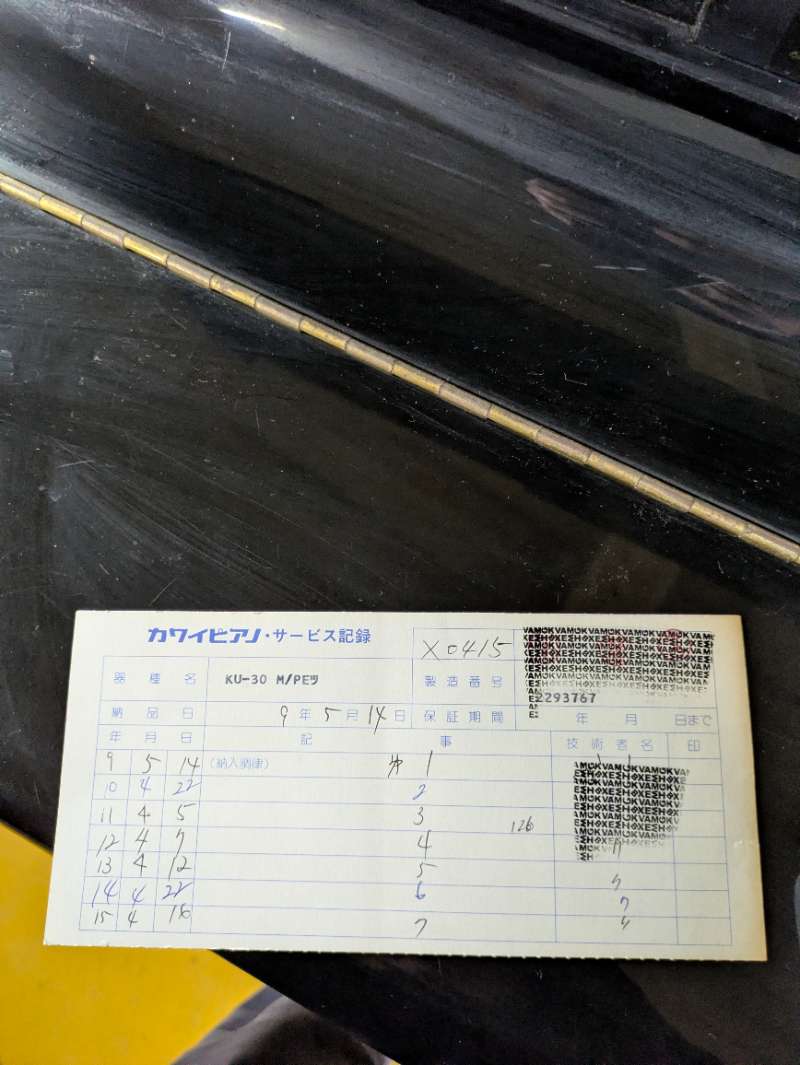 カワイピアノ・サービス記録
X0415
器種名 KU-30 M/PEツ 製造番号 2293767
納品日 9年5月14日 保証期間 年 月 日まで
年 月 日 記事 技術者名 印
9 5 14 (納入調律) 1
10 4 22 2
11 4 5 3 126
12 4 7 4
13 4 12 5
14 4 22 6
15 4 16 7